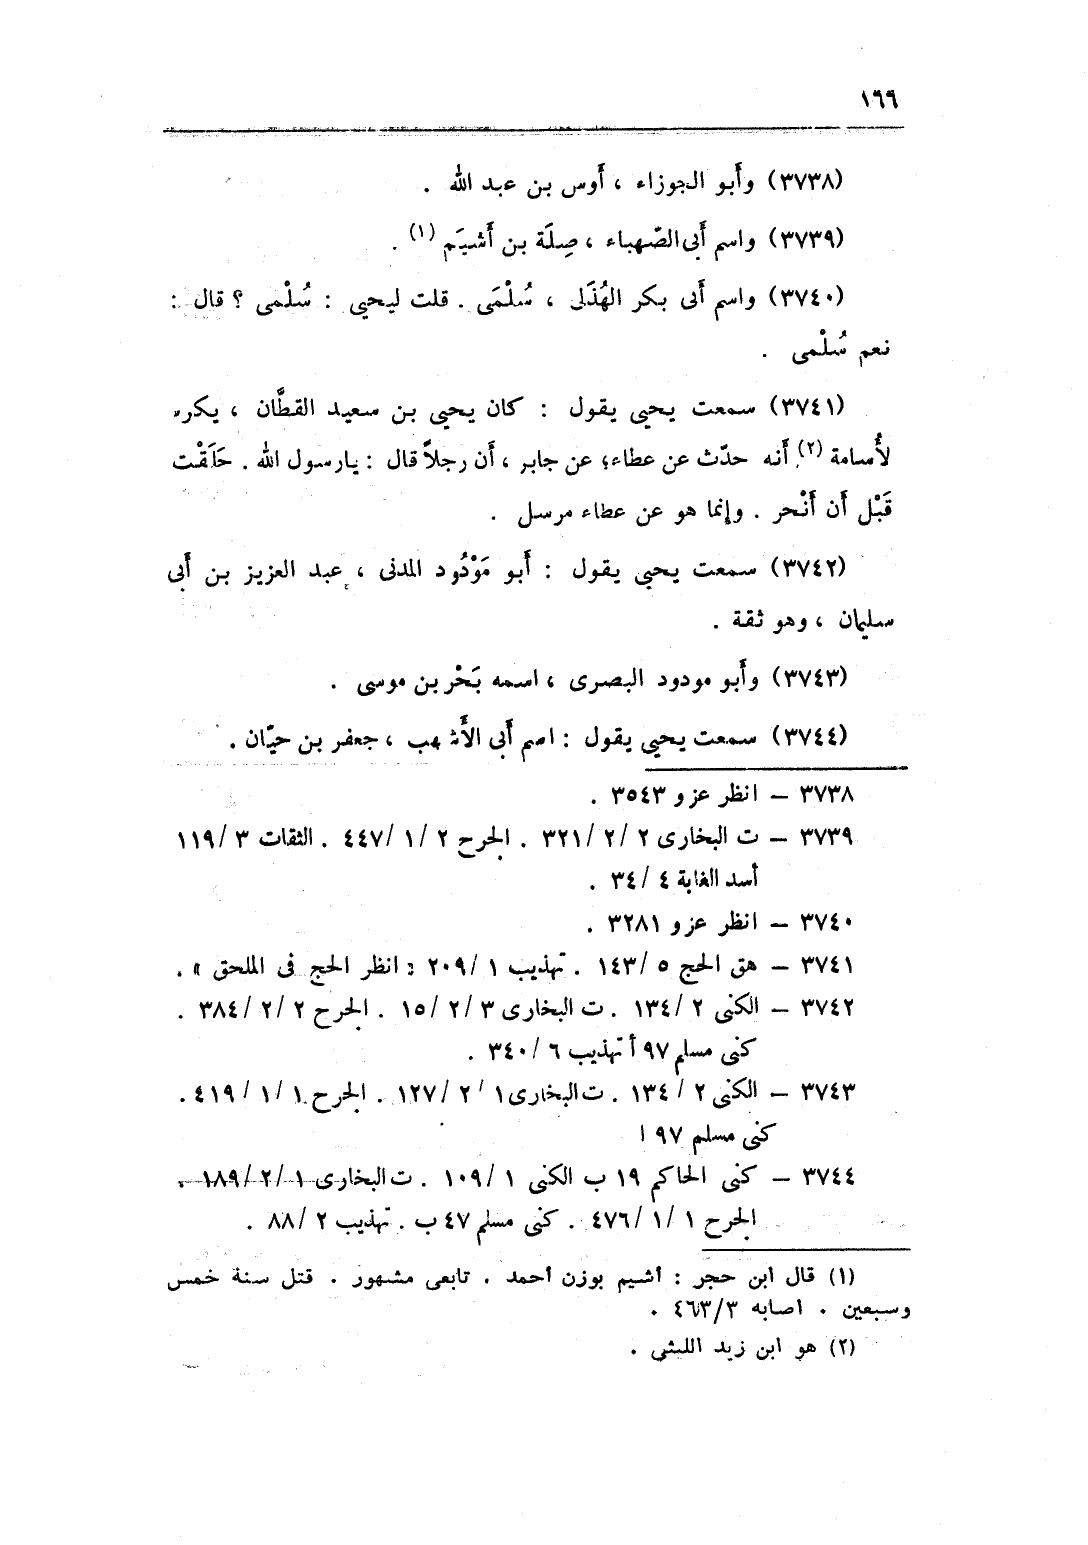 ١٦٦
(٣٧٣٨) وأَبو الجوزاء ، أَوس بن عبد الله .
(٣٧٣٩) واسم أَبى الصّهباء ، صِلَة بن أَشيَم (١) .
(٣٧٤٠) واسم أَبى بكر الهُذَلى ، سُلْمَى . قلت ليحيى : سُلْمى ؟ قال :
نعم سُلْمى .
(٣٧٤١) سمعت يحيى يقول : كان يحيى بن سعيد القطَّان ، يكره
لأُسامة (٢) أَنه حدّث عن عطاء؛ عن جابر ، أَن رجلاً قال : يارسول الله . حَلَقْت
قَبْل أَن أَنْحر . وإنما هو عن عطاء مرسل .
(٣٧٤٢) سمعت يحيى يقول : أَبو مَوْدُود المدنى ، عبد العزيز بن أَبى
سليمان ، وهو ثقة .
(٣٧٤٣) وأَبو مودود البصرى ، اسمه بَحْر بن موسى .
(٣٧٤٤) سمعت يحيى يقول : اسم أَبى الأَشهب ، جعفر بن حيّان .
٣٧٣٨ – انظر عزو ٣٥٤٣ .
٣٧٣٩ – ت البخارى ٢ /٢ /٣٢١ . الجرح ٢ /١ /٤٤٧ . الثقات ٣ /١١٩
أسد الغابة ٤ /٣٤ .
٣٧٤٠ – انظر عزو ٣٢٨١ .
٣٧٤١ – هق الحج ٥ /١٤٣ . تهذيب ١ /٢٠٩ : انظر الحج فى الملحق » .
٣٧٤٢ – الكنى ٢ /١٣٤ . ت البخارى ٣ /٢ /١٥ . الجرح ٢ /٢ /٣٨٤ .
كنى مسلم ٩٧ أ تهذيب ٦ /٣٤٠ .
٣٧٤٣ – الكنى ٢ / ١٣٤ . ت البخارى ١ / ٢ /١٢٧ . الجرح ١ /١ /٤١٩ .
كنى مسلم ٩٧ ا
٣٧٤٤ – كنى الحاكم ١٩ ب الكنى ١ /١٠٩ . ت البخارى ١ /٢ /١٨٩ .
الجرح ١ /١ /٤٧٦ . كنى مسلم ٤٧ ب . تهذيب ٢ /٨٨ .
(١) قال ابن حجر : أشيم بوزن أحمد . تابعى مشهور . قتل سنة خمس
وسبعين . اصابه ٤٦٣/٣ .
(٢) هو ابن زيد الليثى .